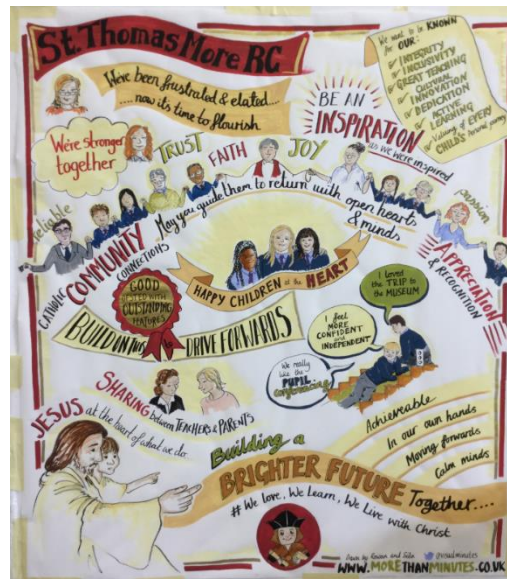 St. Thomas More RC
We've been frustrated & elated....
....now its time to flourish
We want to be KNOWN
for OUR:
INTEGRITY
INCLUSIVITY
GREAT TEACHING
CULTURAL
INNOVATION
DEDICATION
ACTIVE
LEARNING
Valuing of EVERY
CHILD'S personal journey
BE AN
INSPIRATION
as we were inspired
We're stronger
together
TRUST
FAITH
JOY
reliable
passion
May you guide them to return with open hearts
& minds
CATHOLIC
COMMUNITY
CONNECTIONS
APPRECIATION
& RECOGNITION
HAPPY CHILDREN at the HEART
GOOD
WITH
OUTSTANDING
FEATURES
BUILD ON THIS
& DRIVE FORWARDS
I loved
the TRIP to
the MUSEUM
I feel
MORE
CONFIDENT
and INDEPENDENT
We really
like the
PUPIL
conferencing
SHARING between TEACHERS & PARENTS
JESUS at the heart of what we do
Achieveable
In our own hands
Moving forwards
Calm minds
Building a
BRIGHTER FUTURE Together....
# We love, We Learn, We Live with Christ
WWW.MORETHANMINUTES.CO.UK